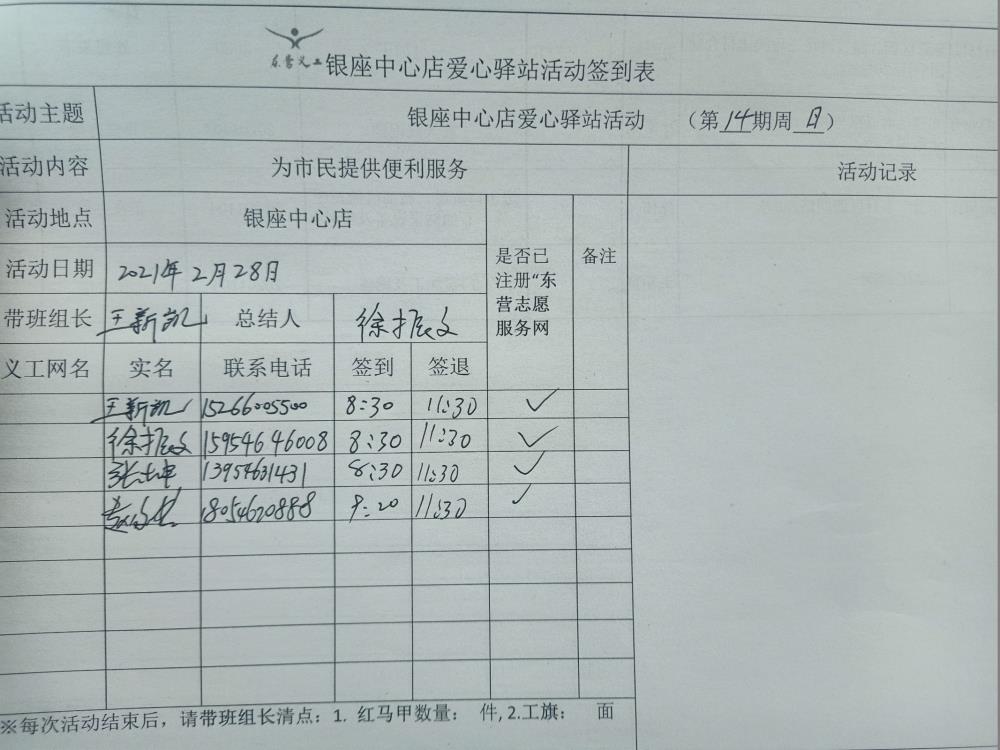 东营义工 银座中心店爱心驿站活动签到表
活动主题 银座中心店爱心驿站活动 （第14期周日）
活动内容 为市民提供便利服务 活动记录
活动地点 银座中心店 是否已注册“东营志愿服务网 备注
活动日期 2021年2月28日
带班组长 王新凯 总结人 徐振文
义工网名 实名 联系电话 签到 签退
王新凯 15266005500 8:30 11:30 ✓
徐振文 15954646008 8:30 11:30 ✓
张士申 13954631431 8:30 11:30 ✓
18054620888 9:20 11:30 ✓
※每次活动结束后，请带班组长清点：1. 红马甲数量： 件, 2.工旗： 面